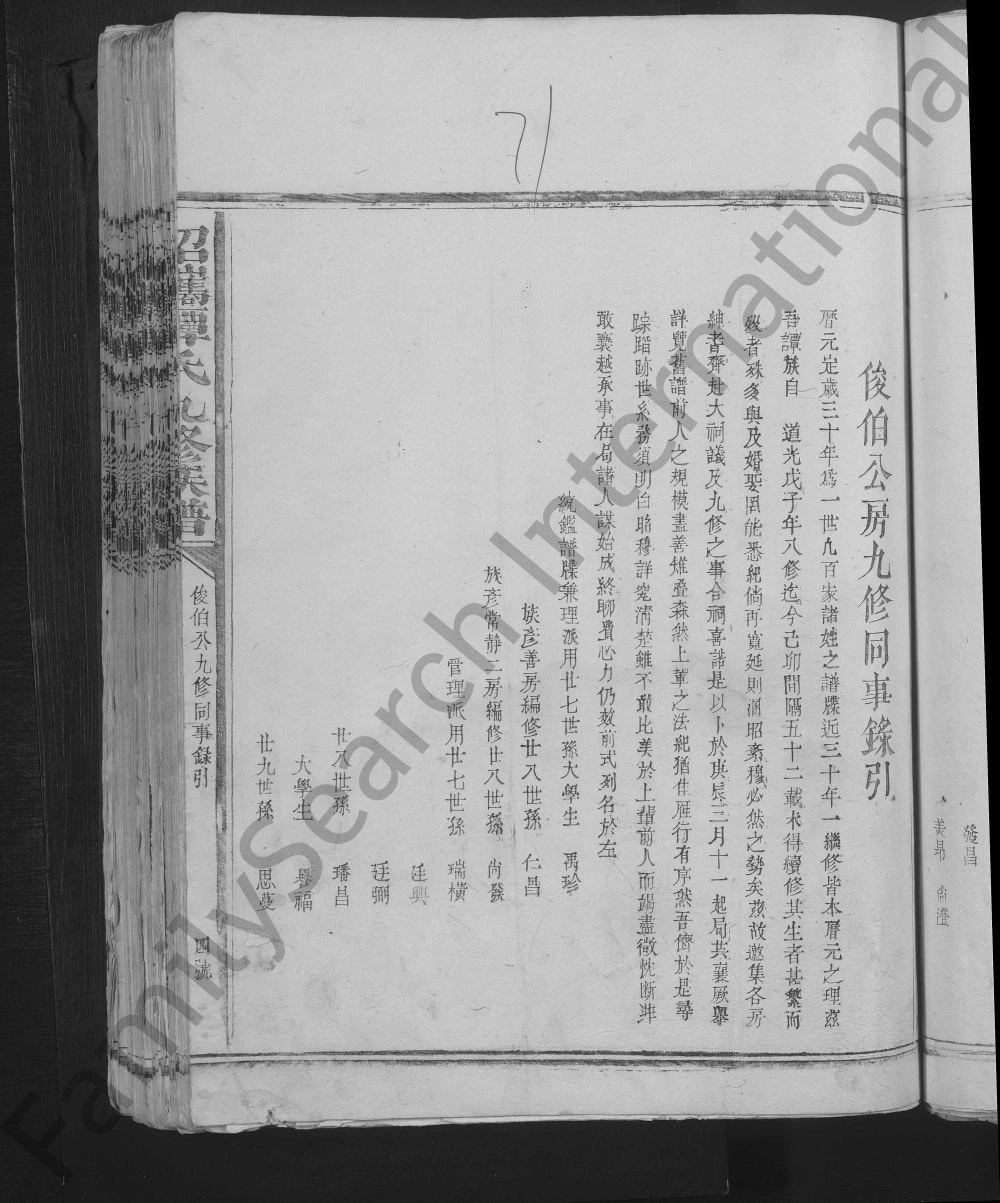 俊伯公房九修同事錄引
曆元定歲三十年爲一世凡百家諸姓之譜牒近三十年一繼修皆本曆元之理茲
吾譚族自 道光戊子年八修迄今己卯間隔五十二載未得續修其生者甚繁而
歿者殊多與及婚娶罔能悉紀倘再寬延則溷昭紊穆必然之勢矣茲故邀集各房
紳耆齊赴大祠議及九修之事合祠喜諧是以卜於庚辰三月十一起局共襄厥舉
詳覽舊譜前人之規模盡善雉疊森然上輩之法紀猶隹雁行有序然吾儕於是尋
踪踏跡世系務須明白昭穆詳寔淸楚雖不敢比美於上輩前人而竭盡微忱断非
敢褻越承事在局諸人謀始成終聊費心力仍效前式列名於左
統鑑譜牒兼理派用廿七世孫大學生 禹珍
族彦善房編修廿八世孫 仁昌
族彦常靜二房編修廿八世孫 尚發
管理派用廿七世孫 瑞橫
廷興
廷弼
廿八世孫 璠昌
大學生 譽福
廿九世孫 思蔓
譚氏九修族譜
俊伯公九修同事錄引
四號
發昌
美昂 尚澄
71
FamilySearch International